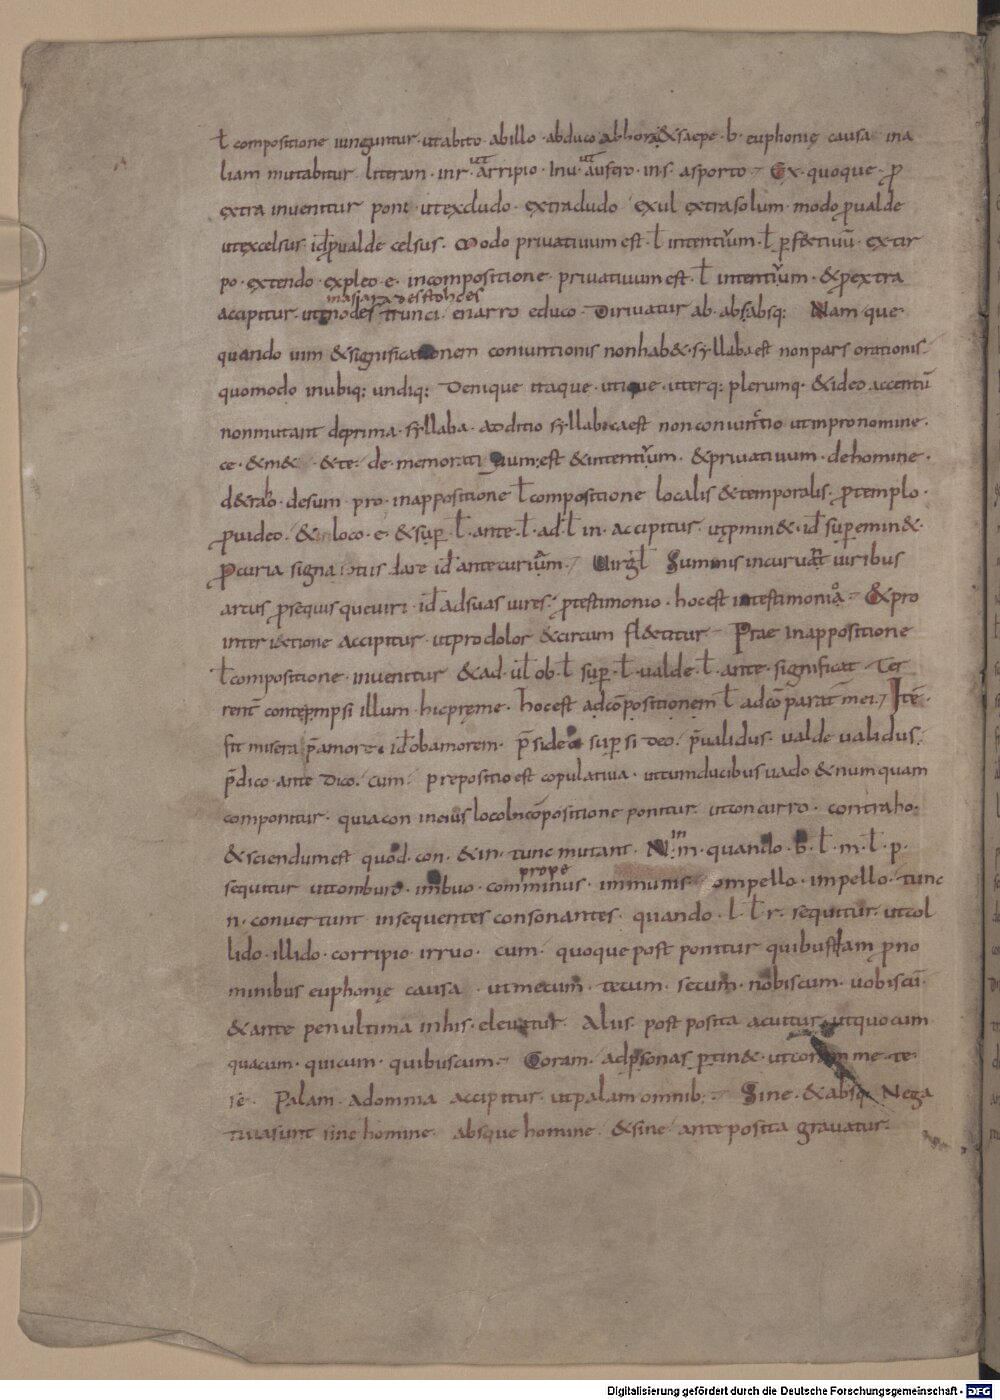 ł compositione iunguntur · ut abito · ab illo · abduco abhorreo & saepe · b · euphonię causa in a
liam mutabitur literam · in r · ut arripio · In u · ut aufero · in s · asporto Ex · quoque · p̄
extra inuenitur poni · ut excludo · extra cludo exul extra solum · modo pualde
ut excelsus id pualde celsus · Modo priuatiuum est · ł intentiuum · ł pfectiuū · extir
po · extendo · expleo · e · in compositione · priuatiuum est · ł intentiuum · & p extra
accipitur · ut enodes trunci · enarro educo · Diriuatur ab · abs absq: Nam que
quando uim & significationem coniunctionis non hab& · syllaba est non pars orationis
quomodo in ubiq: undiq: Denique itaque · utique · uterq: plerumq · & ideo accentū
non mutant de prima · syllaba · additio syllabica est non coniunctio ut in pronomine ·
ce · & m& · & te · de · memoratiuum est & intentiuum · & priuatiuum · de homine ·
desum · pro · in appositione ł compositione localis & temporalis · p templo ·
puideo · & loco · e · & sup · ł · ante · ł · ad · ł in · accipitur · ut pmin& · id supemin& ·
p curia signa dare id ante curiam Uirgł Summis incuruant uiribus
arcus p se quisque uiri · id ad suas uires · p testimonio · hoc est in testimonio & pro
interiectione accipitur · ut pro dolor & circum flectitur Prae In appositione
ł compositione · inuenitur & ad · uł ob · ł sup · ł · ualde · ł · ante · significat Ter
illum · hic pre me · hoc est ad cōpositionem ł ad cōparat mei Itē
fit misera p̄ amore · id ob amorem · p̄sideo supsideo · p̄ualidus · ualde ualidus ·
p̄dico · ante dico · cum · prepositio est copulatiua · ut cum ducibus uado & numquam
componitur · quia con in eius loco in cōpositione ponitur · ut concurro · contraho ·
& sciendum est quod · con · & in · tunc mutant · N · in · m · quando · b · ł · m · ł · p ·
prope
sequitur ut comburo · imbuo · comminus · immunis · compello · impello · tunc
n · conuertunt in sequentes consonantes · quando · l · ł r · sequitur · ut col
lido · illido · corripio · irruo · cum · quoque post ponitur quibusdam p̄no
minibus euphonię causa · ut mecum · tecum · secum · nobiscum · uobiscū ·
& ante penultima in his · eleuatur Alus · post posita acuitur · ut quocum
quacum · quicum · quibuscum · Coram · ad psonas ptin& · ut coram me · te ·
se · Palam · ad omnia accipitur · ut palam omnib: Sine · & absq: Nega
tiua sunt sine homine · absque homine · & sine ante posita grauatur ·
Digitalisierung gefördert durch die Deutsche Forschungsgemeinschaft - DFG